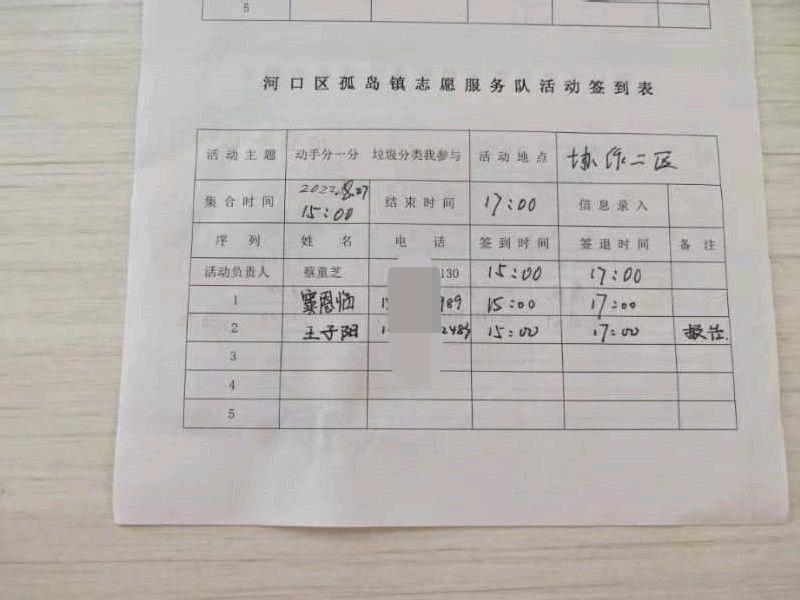 5
河口区孤岛镇志愿服务队活动签到表
活动主题 动手分一分 垃圾分类我参与 活动地点 协作二区
集合时间 2022.8.27 15:00 结束时间 17:00 信息录入
序列 姓名 电话 签到时间 签退时间 备注
活动负责人 蔡童芝 130 15:00 17:00
1 窦恩 989 15:00 17:00
2 王子阳 2489 15:00 17:00
3
4
5